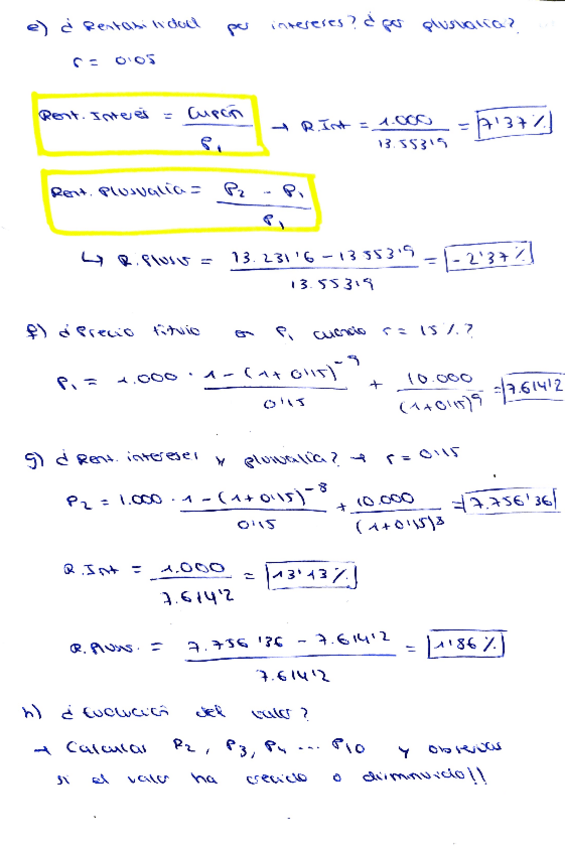 e) ¿Rentabilidad por intereses? ¿por plusvalía?
r = 0'05
Rent. Interés = Cupón / P₁ → R.Int = 1.000 / 13.553'9 = 7'37%
Rent. Plusvalía = P₂ - P₁ / P₁
↳ R.Plusv = 13.231'6 - 13.553'9 / 13.553'9 = -2'37%
f) ¿Precio título en P₁ cuando r = 15%?
P₁ = 1.000 · 1-(1+0'15)⁻⁹ / 0'15 + 10.000 / (1+0'15)⁹ = 7.614'2
g) ¿Rent. intereses y plusvalía? → r = 0'15
P₂ = 1.000 · 1-(1+0'15)⁻⁸ / 0'15 + 10.000 / (1+0'15)⁸ = 7.756'36
R.Int = 1.000 / 7.614'2 = 13'13%
R.Plusv. = 7.756'36 - 7.614'2 / 7.614'2 = 1'86%
h) ¿Evolución del valor?
→ Calcular P₂, P₃, P₄ ... P10 y observar
si el valor ha crecido o disminuido!!